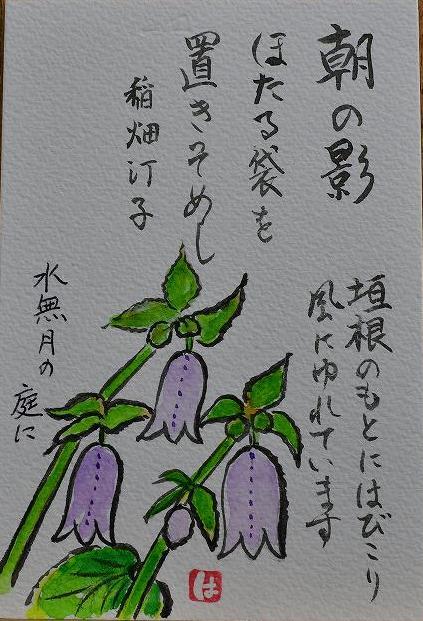 朝の影
ほたる袋を
置きそめし
稲畑汀子
垣根のもとにはびこり
風にゆれています
水無月の
庭に
は